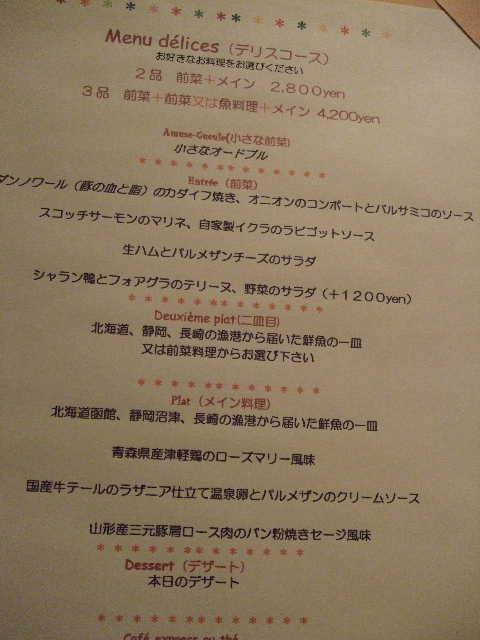 Menu délices（デリスコース）
お好きなお料理をお選びください
２品　前菜＋メイン　2,800yen
３品　前菜＋前菜又は魚料理＋メイン 4,200yen
Amuse-Gueule(小さな前菜)
小さなオードブル
Entrée（前菜）
ダンノワール（豚の血と脂）のカダイフ焼き、オニオンのコンポートとバルサミコのソース
スコッチサーモンのマリネ、自家製イクラのラビゴットソース
生ハムとパルメザンチーズのサラダ
シャラン鴨とフォアグラのテリーヌ、野菜のサラダ（＋１２００yen）
Deuxième plat(二皿目)
北海道、静岡、長崎の漁港から届いた鮮魚の一皿
又は前菜料理からお選び下さい
Plat（メイン料理）
北海道函館、静岡沼津、長崎の漁港から届いた鮮魚の一皿
青森県産津軽鶏のローズマリー風味
国産牛テールのラザニア仕立て温泉卵とパルメザンのクリームソース
山形産三元豚肩ロース肉のパン粉焼きセージ風味
Dessert（デザート）
本日のデザート
Café express ou thé